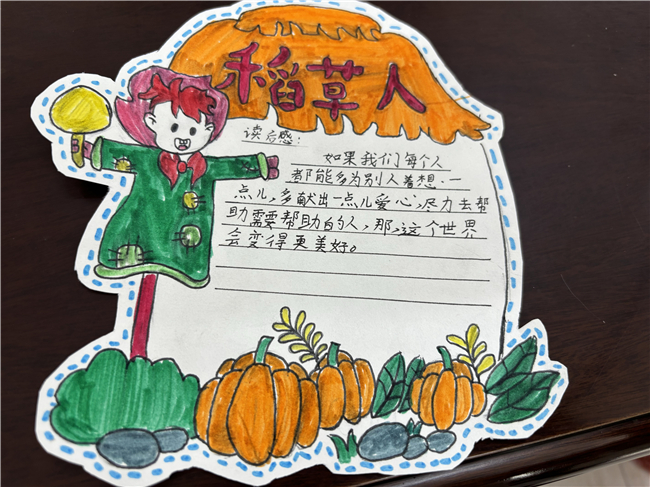 稻草人
读后感:
如果我们每个人
都能多为别人着想一
点儿,多献出一点儿爱心,尽力去帮
助需要帮助的人,那,这个世界
会变得更美好。